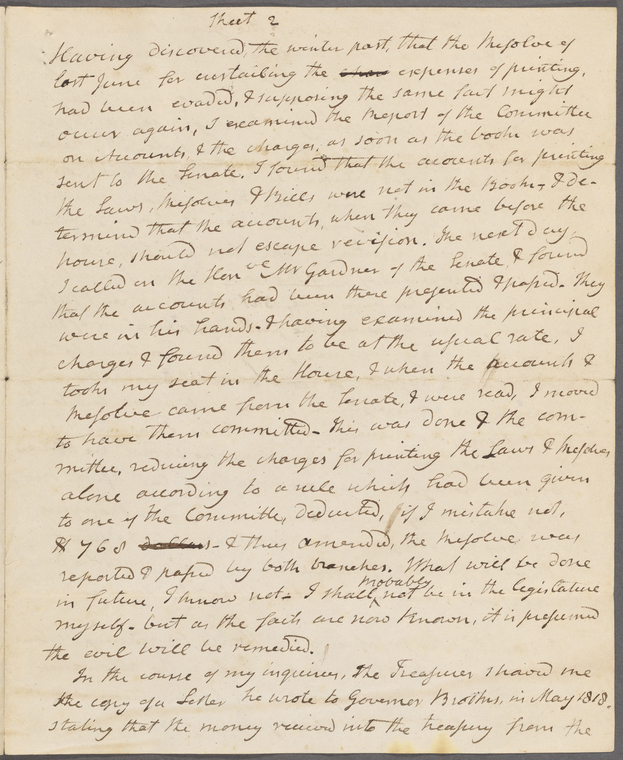 Sheet 2
Having discovered, the winter past, that the Resolve of
last June for curtailing the expenses of printing,
had been evaded, & supposing the same fact might
occur again, I examined the Report of the Committee
on Accounts, & the charges, as soon as the book was
sent to the Senate. I found that the accounts for printing
the Laws, Resolves & Bills were not in the Book, & de-
termined that the accounts, when they came before the
house, should not escape revision. The next day,
I called on the Honble Mr Gardner of the Senate & found
that the accounts had been there presented & passed. They
were in his hands - & having examined the principal
charges & found them to be at the usual rate, I
took my seat in the House, & when the accounts &
Resolve came from the Senate, & were read, I moved
to have them committed - This was done & the com-
mittee, reducing the charges for printing the Laws & Resolves
alone according to a rule which had been given
to one of the Committee, deducted, if I mistake not,
$ 768 dollars - & thus amended, the Resolve was
reported & passed by both branches. What will be done
in future, I know not - I shall probably not be in the legislature
myself - but as the facts are now known, it is presumed
the evil will be remedied.
In the course of my inquiries, the Treasurer showed me
the copy of a Letter he wrote to Governor Brooks, in May 1818.
stating that the money received into the treasury from the